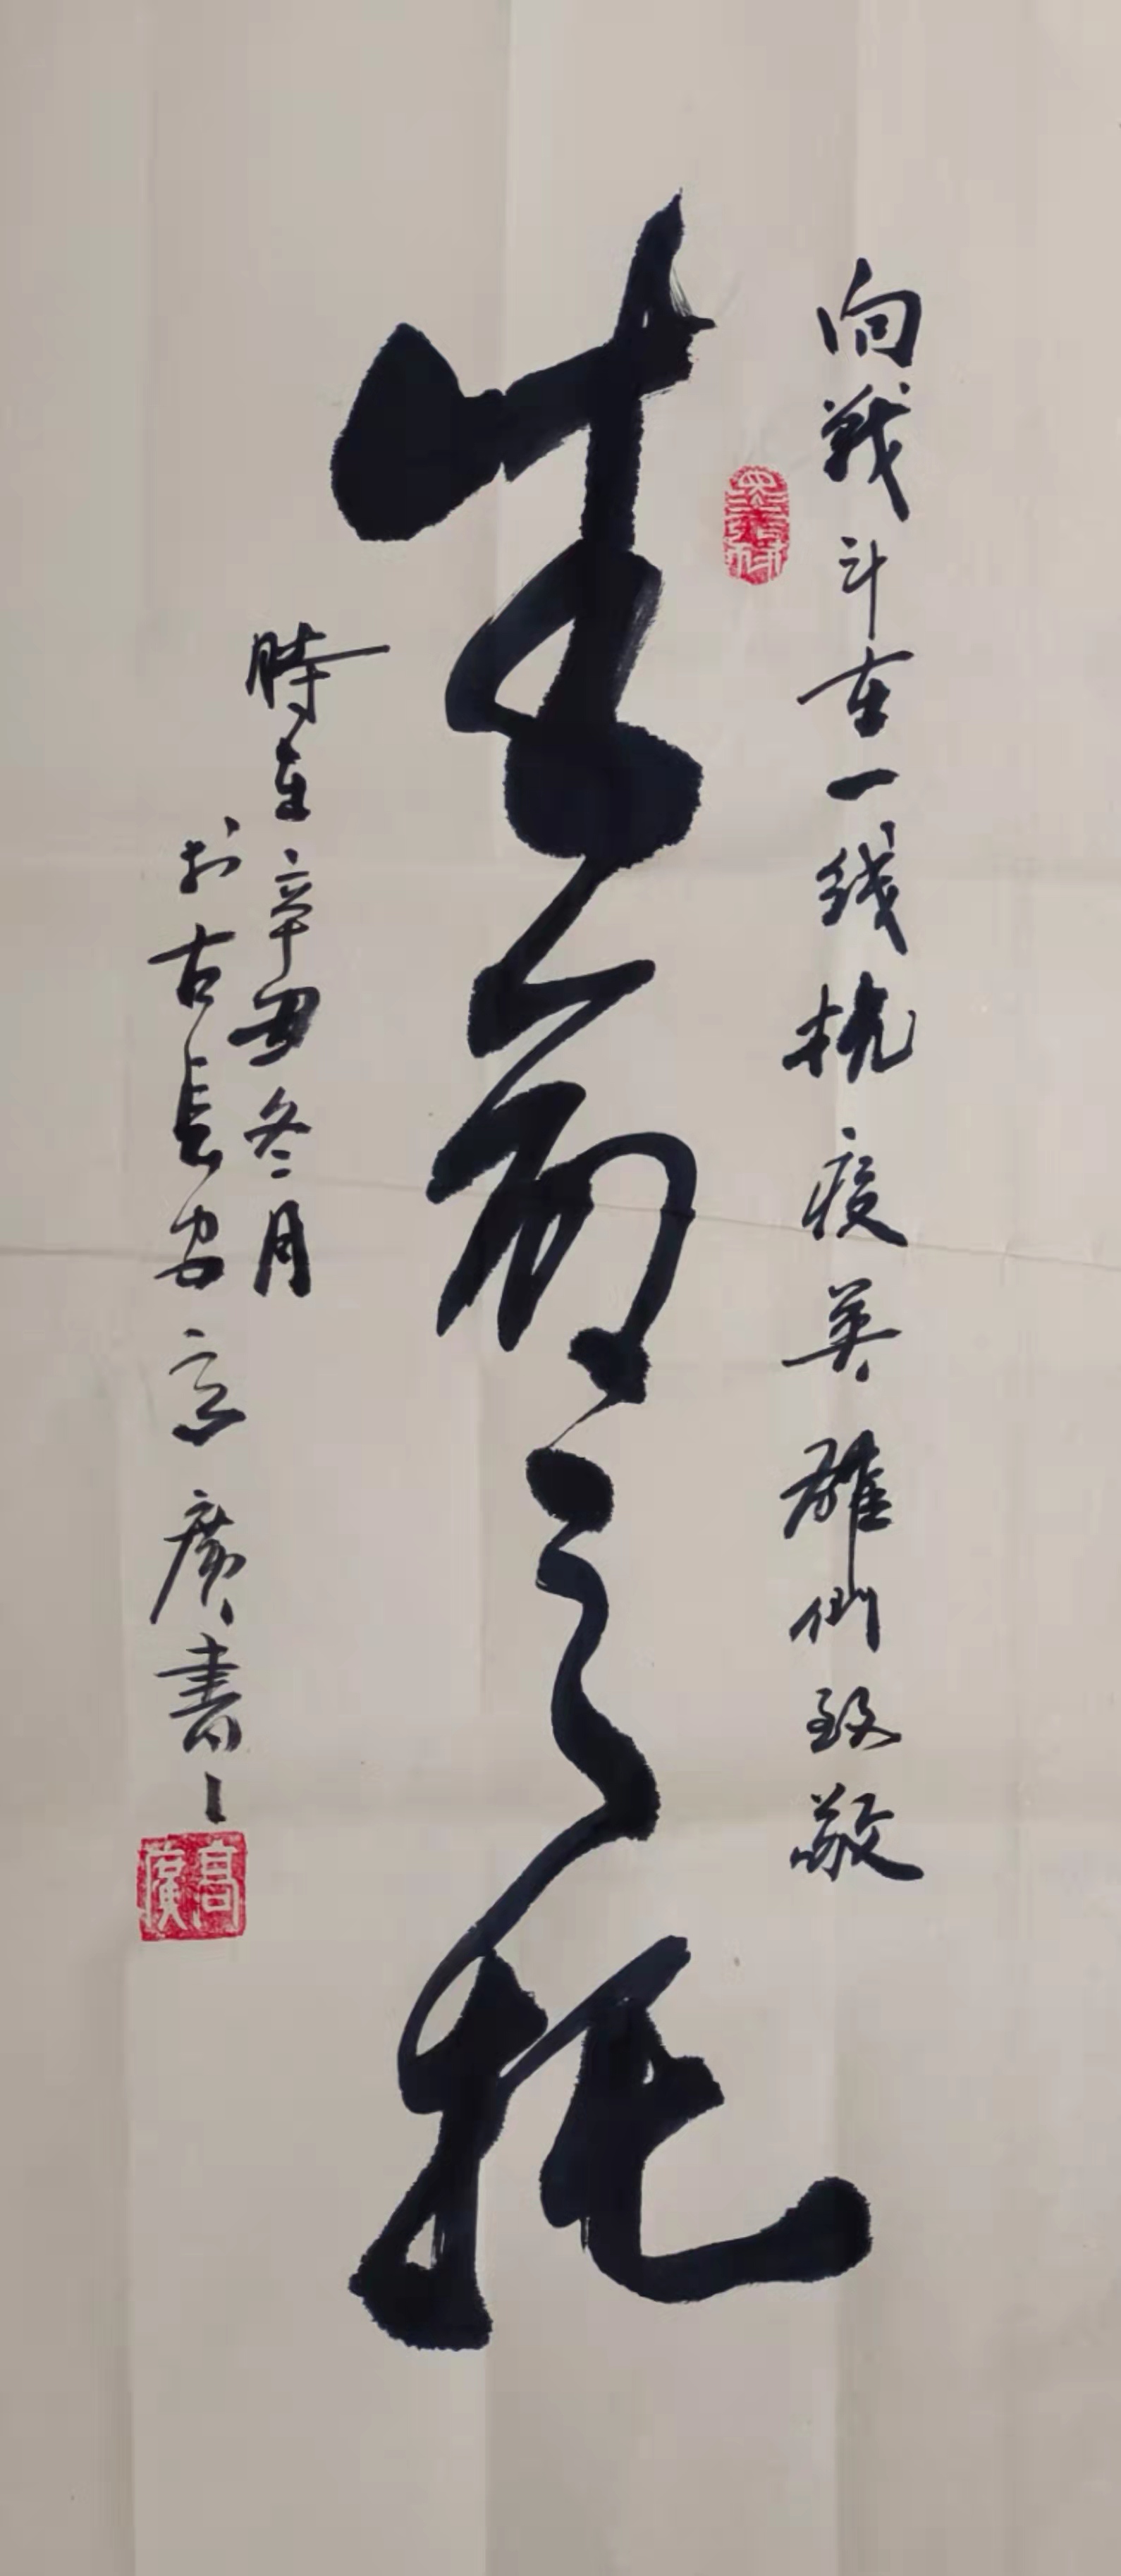 向戰斗在一綫抗疫英雄們致敬
生命之托
時在辛丑冬月
於古長安高廣書
高廣